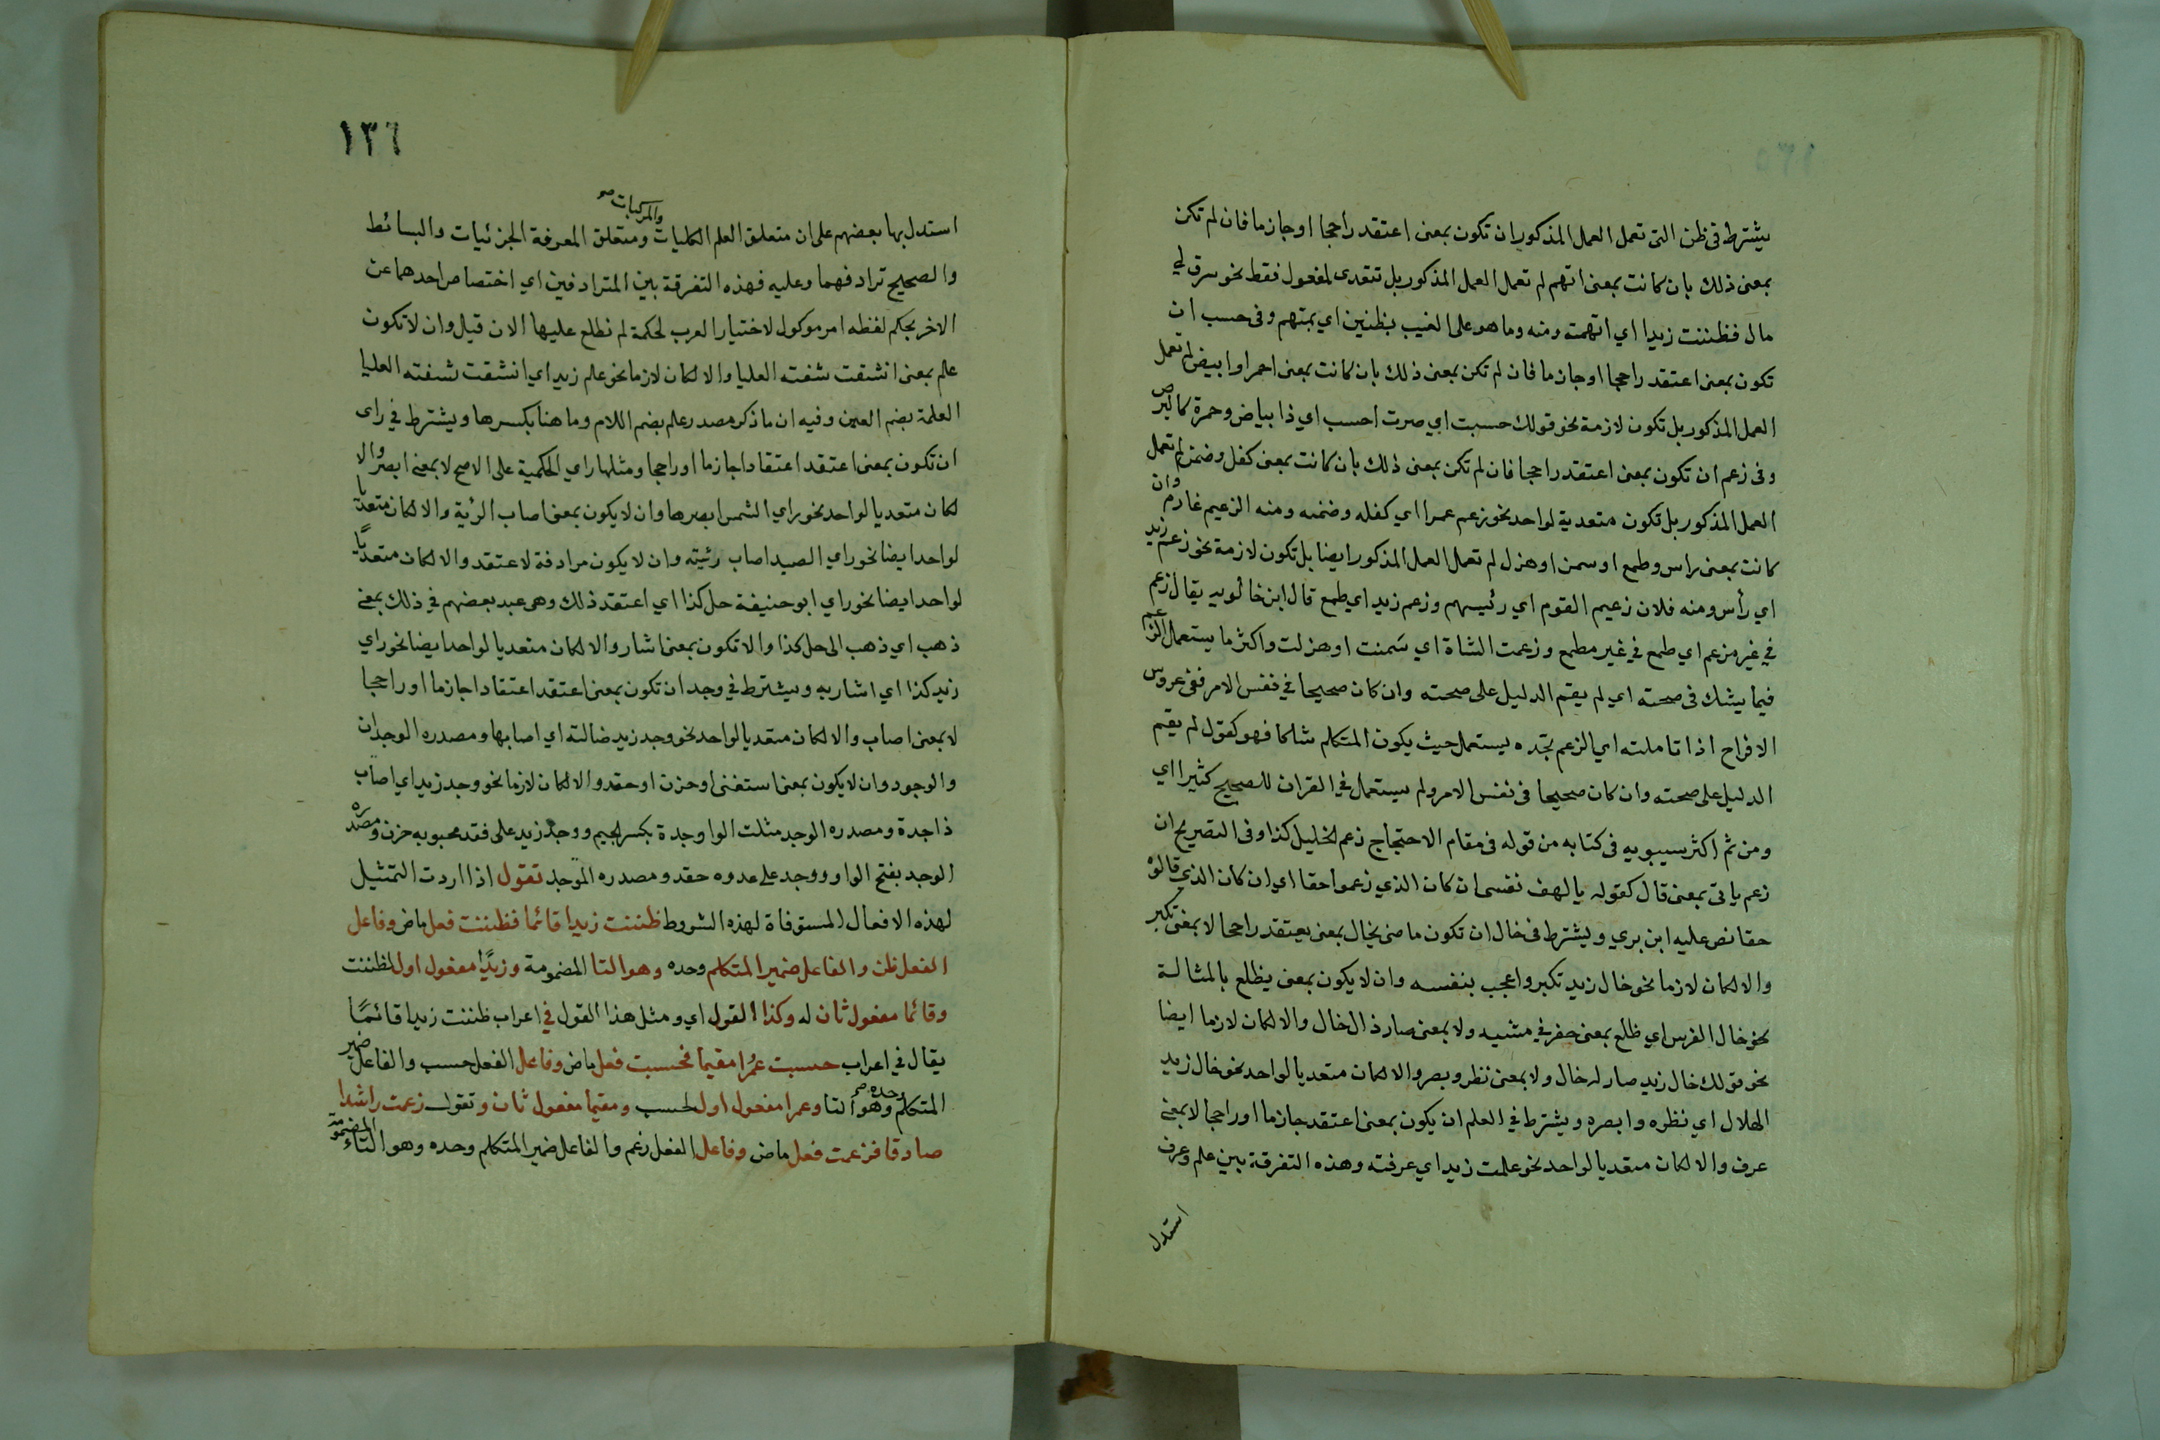 يشترط في ظن التي تعمل العمل المذكور ان تكون بمعنى اعتقد راجحا او جازما فان لم تكن
بمعنى ذلك بان كانت بمعنى اتهم لم تعمل العمل المذكور بل تتعدى لمفعول فقط نحو سرق لي
مال فظننت زيدا اي اتهمته ومنه وما هو على الغيب بظنين اي بمتهم وفي حسب ان
تكون بمعنى اعتقد راجحا او جازما فان لم تكن بمعنى ذلك بان كانت بمعنى احمر او ابيض لم تعمل
العمل المذكور بل تكون لازمة نحو قولك حسبت اي صرت احسب اي ذا بياض وحمرة كالبرص
وفي زعم ان تكون بمعنى اعتقد راجحا فان لم تكن بمعنى ذلك بان كانت بمعنى كفل وضمن لم تعمل
العمل المذكور بل تكون متعدية لواحد نحو زعم عمرا اي كفله وضمنه ومنه الزعيم غارم وان
كانت بمعنى راس وطمع او سمن او هزل لم تعمل العمل المذكور ايضا بل تكون لازمة نحو زعم زيد
اي رأس ومنه فلان زعيم القوم اي رئيسهم وزعم زيد اي طمع قال ابن خالويه يقال زعم
في غير مزعم اي طمع في غير مطمع وزعمت الشاة اي سَمنت او هزلت واكثر ما يستعمل الزعم
فيما يشك في صحته اي لم يقم الدليل على صحته وان كان صحيحا في نفس الامر ففي عروس
الافراح اذا تاملته اي الزعم تجده يستعمل حيث يكون المتكلم شاكا فهو كقول لم يقم
الدليل على صحته وان كان صحيحا في نفس الامر ولم يستعمل في القران للصحيح كثيرا اي
ومن ثم اكثر سيبويه في كتابه من قوله في مقام الاحتجاج زعم الخليل كذا وفي التصريح ان
زعم ياتي بمعنى قال كقوله يا لهف نفسي ان كان الذي زعموا حقا اي ان كان الذي قالوه
حقا نص عليه ابن بري ويشترط في خال ان تكون ماضي يخال بمعنى يعتقد راجحا لا بمعنى تكبر
والا لكان لازما نحو خال زيد تكبر واعجب بنفسه وان لا يكون بمعنى يظلع بالمثالة
نحو خال الفرس اي ظلع بمعنى حفر في مشيه ولا بمعنى صار ذا لخال والا لكان لازما ايضا
نحو قولك خال زيد صار له خال ولا بمعنى نظر وبصر والا لكان متعديا لواحد نحو خال زيد
الهلال اي نظره وابصره ويشترط في العلم ان يكون بمعنى اعتقد جازما او راجحا لا بمعنى
عرف والا لكان متعديا لواحد نحو علمت زيدا اي عرفته وهذه التفرقة بين علم وعرف
استدل
١٣٦
والمركبات صح
استدل بها بعضهم على ان متعلق العلم الكليات ومتعلق المعرفة الجزئيات والبسائط
والصحيح ترادفهما وعليه فهذه التفرقة بين المترادفين اي اختصاص احدهما عن
الاخر بحكم لفظه امر موكول لاختيار العرب لحكمة لم نطلع عليها الان قيل وان لا تكون
علم بمعنى انشقت شفته العليا والا لكان لازما نحو علم زيد اي انشقت شفته العليا
العلمة بضم العين وفيه ان ما ذكر مصدر علم بضم اللام وما هنا بكسرها ويشترط في راى
ان تكون بمعنى اعتقد اعتقادا جازما او راجحا ومثلها راي الحكمية على الاصح لا بمعنى ابصر والا
لكان متعديا لواحد نحو راي الشمس ابصرها وان لا يكون بمعنى اصاب الرئية والا لكان متعديا
لواحد ايضا نحو راي الصيد اصاب رئيته وان لا يكون مرادفة لاعتقد والا لكان متعديًا
لواحد ايضا نحو راي ابو حنيفة حل كذا اي اعتقد ذلك وهي عبد بعضهم في ذلك بمعنى
ذهب اي ذهب الى حل كذا والا تكون بمعنى اشار والا لكان متعديا لواحد ايضا نحو راي
زيد كذا اي اشار به ويشترط في وجد ان تكون بمعنى اعتقد اعتقادا جازما او راجحا
لا بمعنى اصاب والا لكان متعديا لواحد نحو وجد زيد ضالته اي اصابها ومصدره الوجدان
والوجود وان لا يكون بمعنى استغنى او حزن او حقد والا لكان لازما نحو وجد زيد اي اصاب
ذا جدة ومصدره الوجد مثلت الواو وجدة بكسر الجيم ووجد زيد على فقد محبوبه حزن ومصدره
الوجد بفتح الواو ووجد على عدوه حقد ومصدره الموجد تقول اذا اردت التمثيل
لهذه الافعال المستوفاة لهذه الشروط ظننت زيدا قائما فظننت فعل ماض وفاعل
الفعل ظن والفاعل ضمير المتكلم وحده وهو التا المضمومة وزيدًا مفعول اول لظننت
وقائما مفعول ثان له وكذا القول اي ومثل هذا القول في اعراب ظننت زيدا قائمًا
يقال في اعراب حسبت عمرا مقيما فحسبت فعل ماض وفاعل الفعل حسب والفاعل ضمير
المتكلم وحده صح وهو التا وعمرا مفعول اول لحسب ومقيما مفعول ثان وتقول زعمت راشدا
صادقا فزعمت فعل ماض وفاعل الفعل زعم والفاعل ضمير المتكلم وحده وهو التاء المضمومة